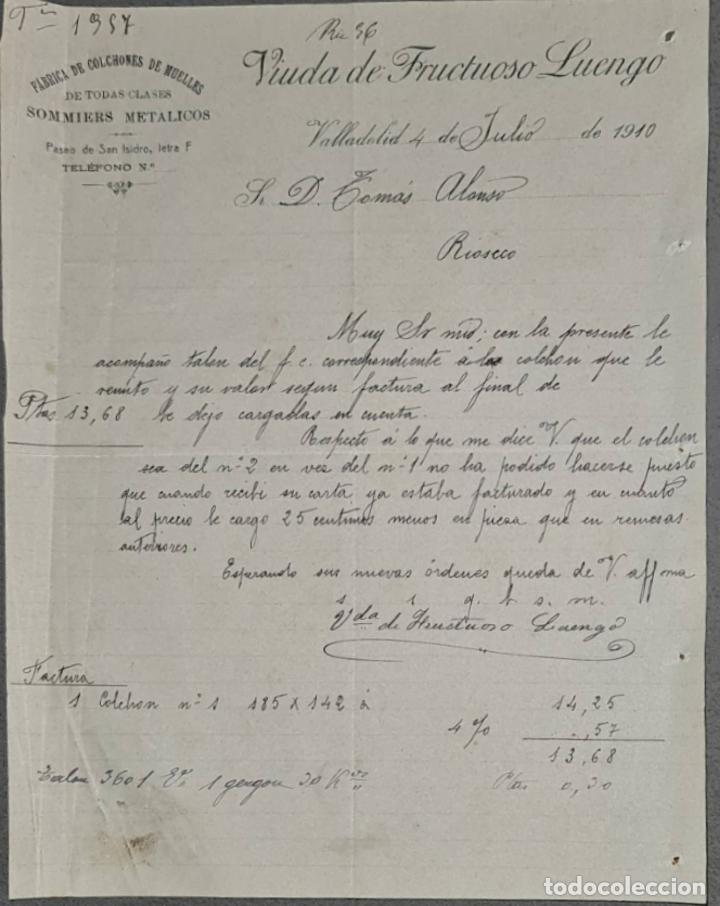 1957
FÁBRICA DE COLCHONES DE MUELLES
DE TODAS CLASES
SOMMIERS METALICOS
Paseo de San Isidro, letra F
TELÉFONO N.º
Viuda de Fructuoso Luengo
Valladolid 4 de Julio de 1910
Sr. D. Tomás Alonso
Rioseco
Muy Sr mio; con la presente le
acompaño talon del f. c. correspondiente á colchon que le
remito y su valor segun factura al final de
Ptas 13,68 le dejo cargadas en cuenta.
Respecto á lo que me dice V. que el colchon
sea del nº 2 en vez del nº 1 no ha podido hacerse puesto
que cuando recibi su carta ya estaba facturado y en cuanto
al precio le cargo 25 centimos menos en pieza que en remesas
anteriores.
Esperando sus nuevas órdenes queda de V. affma
s s q. b. s. m.
Vda de Fructuoso Luengo
Factura
1 Colchon nº 1 185 x 142 á 14,25
4 % ,57
13,68
Talon 3601 1 gergon 30 Ks 0,30
todocoleccion.net